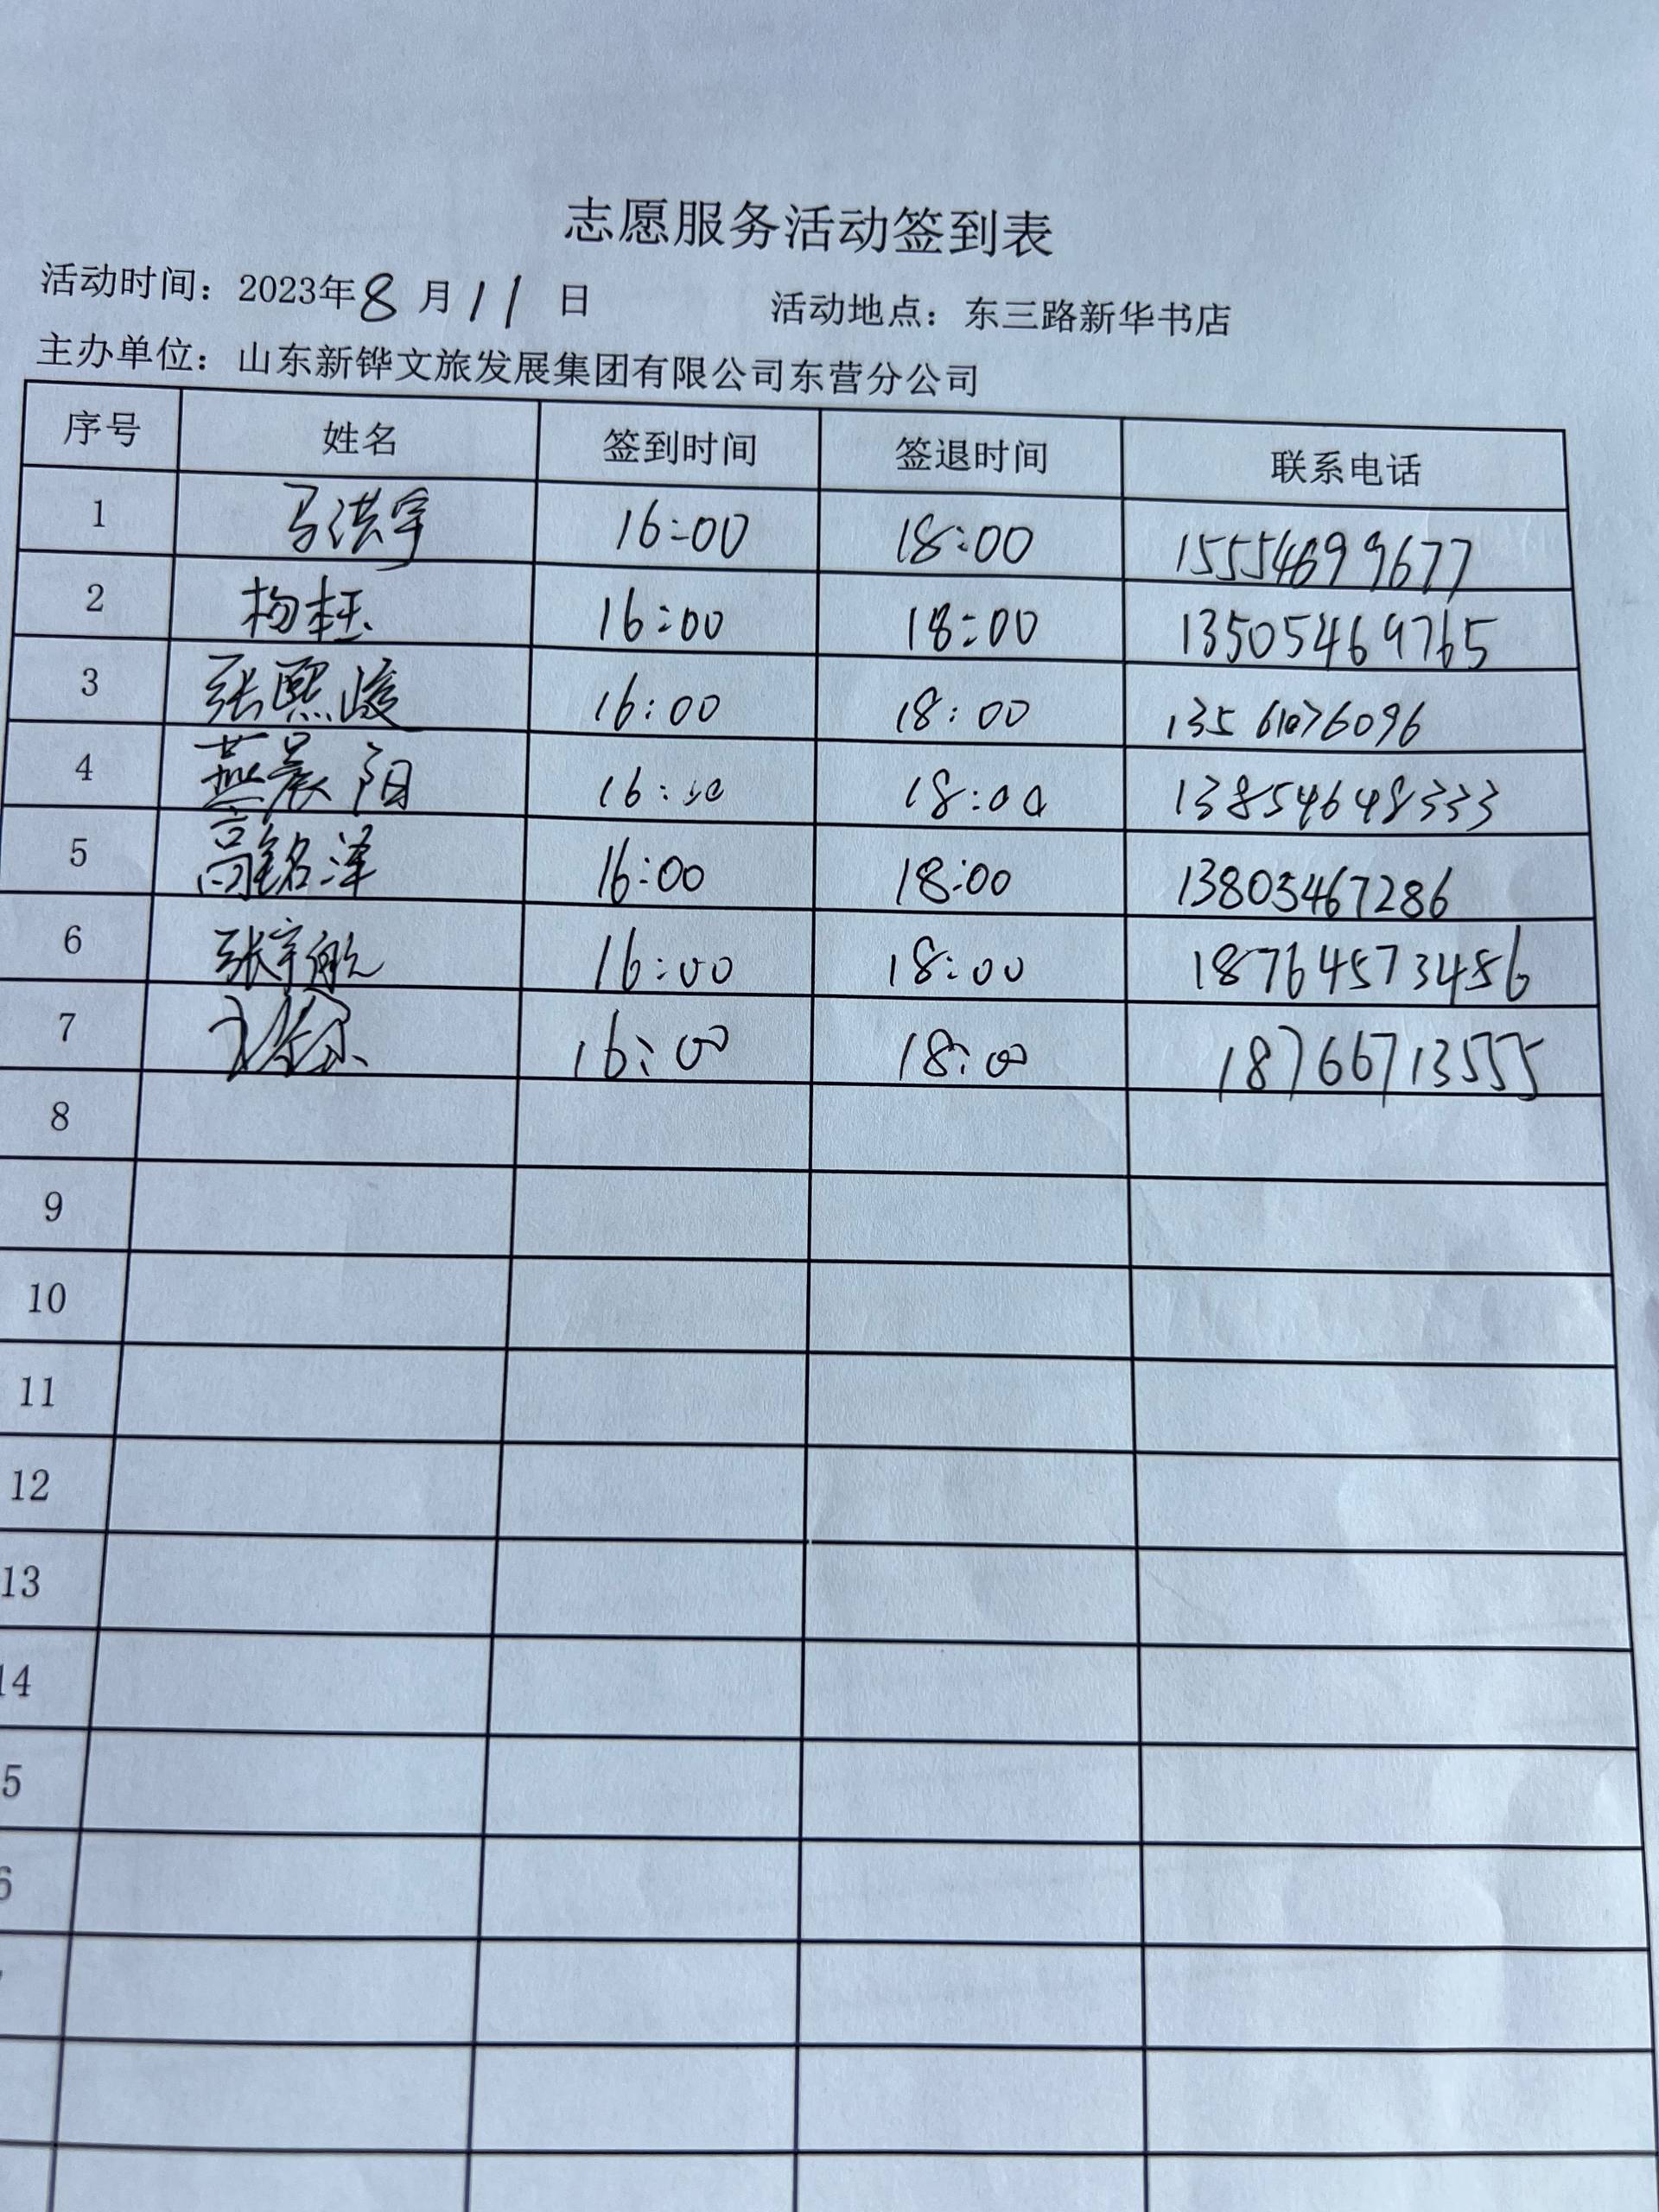 志愿服务活动签到表
活动时间：2023年8月11日 活动地点：东三路新华书店
主办单位：山东新铧文旅发展集团有限公司东营分公司
序号 姓名 签到时间 签退时间 联系电话
1 马洪宇 16:00 18:00 15554699677
2 16:00 18:00 13505469765
3 张熙峻 16:00 18:00
4 燕晨阳 16:00 18:00 13854648333
5 高铭泽 16:00 18:00 13805467286
6 张宇航 16:00 18:00 18764573456
7 16:00 18:00 18766713555
8
9
10
11
12
13
14
5
6